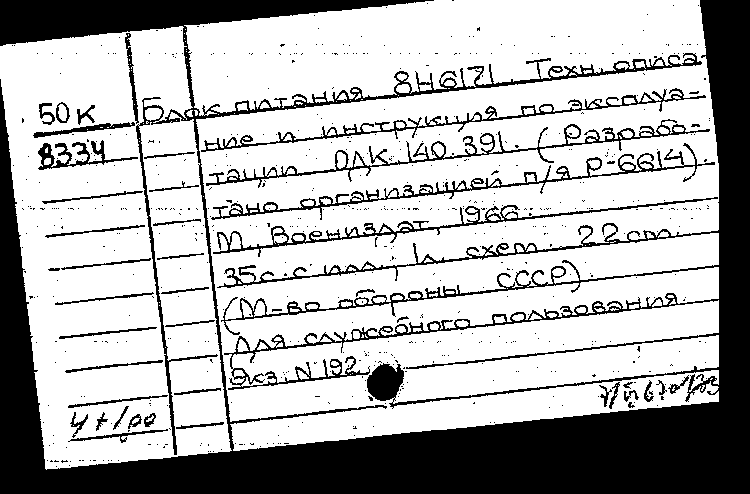 50к Блок питания 8Н6171. Техн. описа-
8334 ние и инструкция по эксплуа-
тации ОДК. 140. 391. (Разрабо-
тано организацией п/я Р-6614).
М., Воениздат, 1966.
35с. с илл.; 1л. схем. 22 cm.
(М-во обороны СССР).
Для служебного пользования.
Экз. N 192